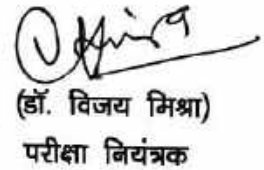 (डॉ. विजय मिश्रा)
परीक्षा नियंत्रक